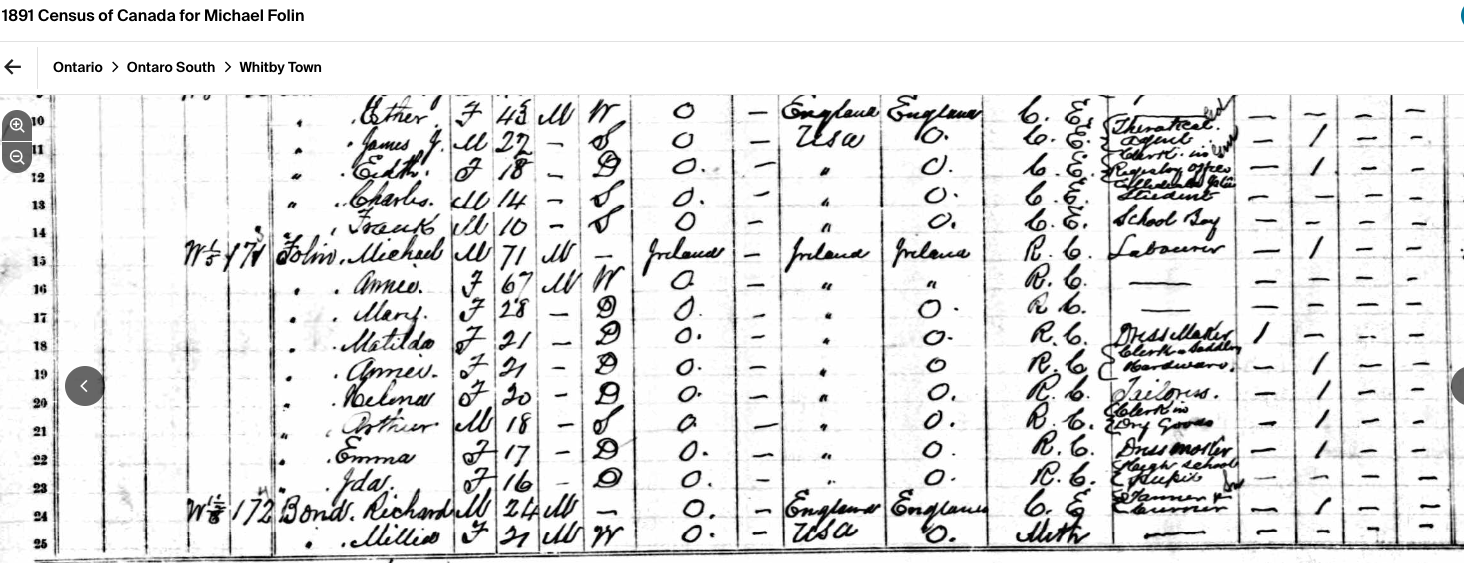 1891 Census of Canada for Michael Folin
Ontario > Ontaro South > Whitby Town
10 " Esther. F 45 M W O — England England C. E.
11 " James J. M 22 — S O — USA O. C. E. Theratical agent — 1 — —
12 " Edith. F 18 — D O. — " O. C. E. Clerk in Registry Office — 1 — —
13 " Charles. M 14 — S O. — " O. C. E. Student — — — —
14 " Frank M 10 — S O " O. C. E. School Boy — — — —
15 171 Folin. Michael M 71 M — Ireland — Ireland Ireland R. C. Labourer — 1 — —
16 " . Annie. F 67 M W O " " R. C. — — — — —
17 " . Mary. F 28 — D O. — " O. R. C. — — — — —
18 " . Matilda F 21 — D O. — " O. R. C. Dress Maker 1 — — —
19 " . Annie. F 21 — D O. — " O R. C. Clerk Saddlery Hardware. — 1 — —
20 " . Helena F 20 — D O. — " O. R. C. Tailoress. — 1 — —
21 " . Arthur M 18 — S O — " O. R. C. Clerk in Dry Goods — 1 — —
22 " . Emma F 17 — D O. — " O. R. C. Dressmaker — 1 — —
23 " . Ida. F 16 — D O. " O. R. C. High School Pupil — — — —
24 172 Bond. Richard M 24 M — O. — England England C. E — 1 — —
25 " . Millie F 21 M W O. — USA O. Meth — — — — —